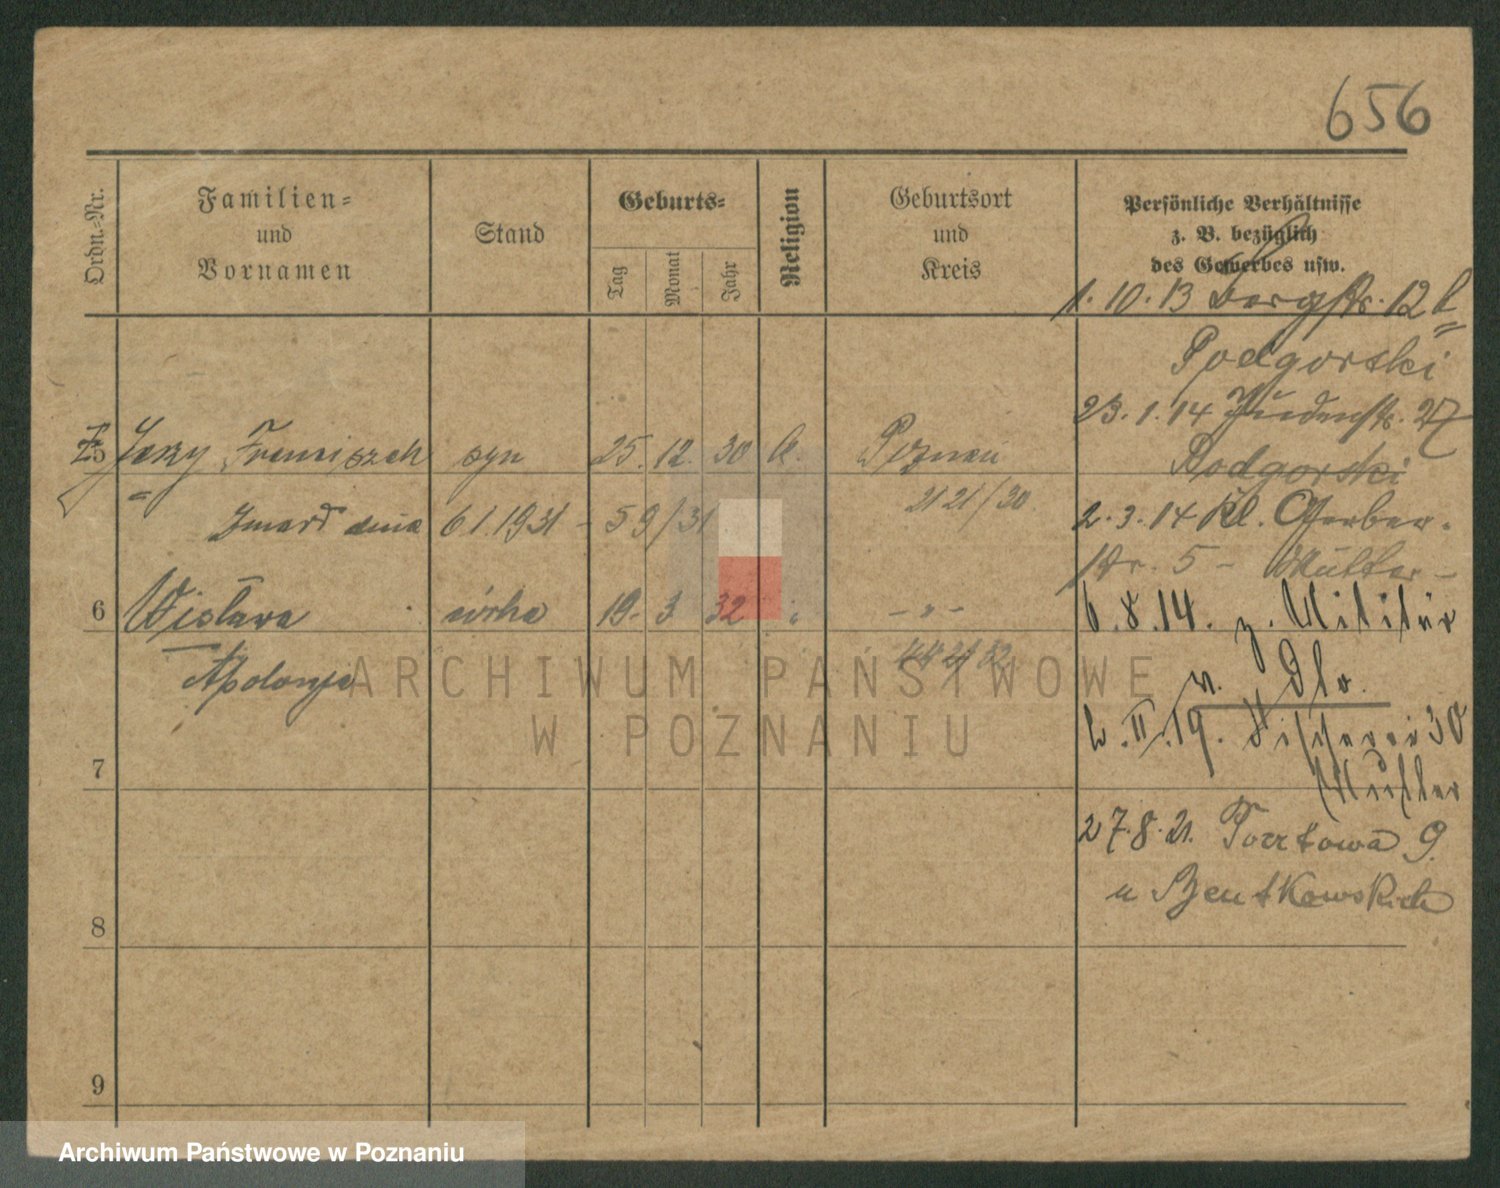 656
Ordn.-Nr.
Familien-
und
Vornamen
Stand
Geburts-
Tag
Monat
Jahr
Religion
Geburtsort
und
Kreis
Persönliche Verhältnisse
z. B. bezüglich
des Gewerbes usw.
1. 10. 13 Bergstr. 12 b
Podgorski
23. 1. 14 Judenstr. 27
Podgorski
5 Jerzy Franciszek syn 25. 12. 30 k. Poznań
2121/30
Zmarł dnia 6 1. 1931 - 59/31
2. 3. 14 Kl. Gerber-
str. 5 - Mutter -
6 Wisława córka 19. 3 32 " - " -
Apolonja
6. 8. 14. z. Militär
v. Dło.
II. 19. Fischerei 30
Mutter
7
27. 8. 21. Pocztowa 9.
u Bentkowskich
8
9
ARCHIWUM PAŃSTWOWE
W POZNANIU
Archiwum Państwowe w Poznaniu